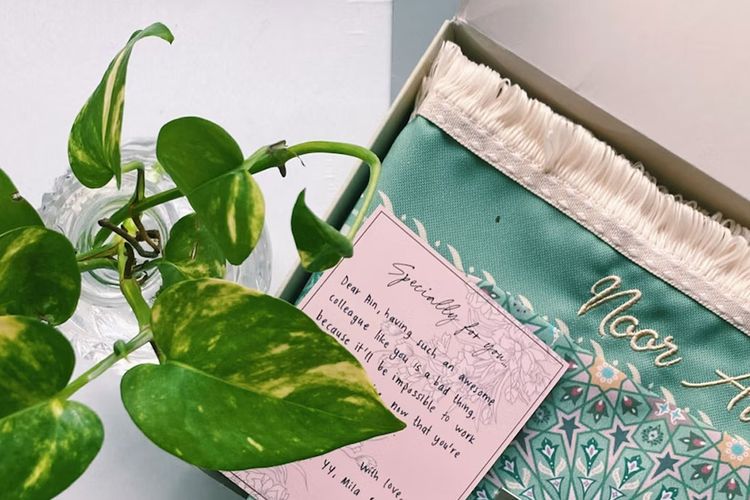 Specially for you
Dear Ain, having such an awesome
colleague like you is a bad thing.
because it'll be impossible to work
now that you're
with love,
YY, Mila
Noor A